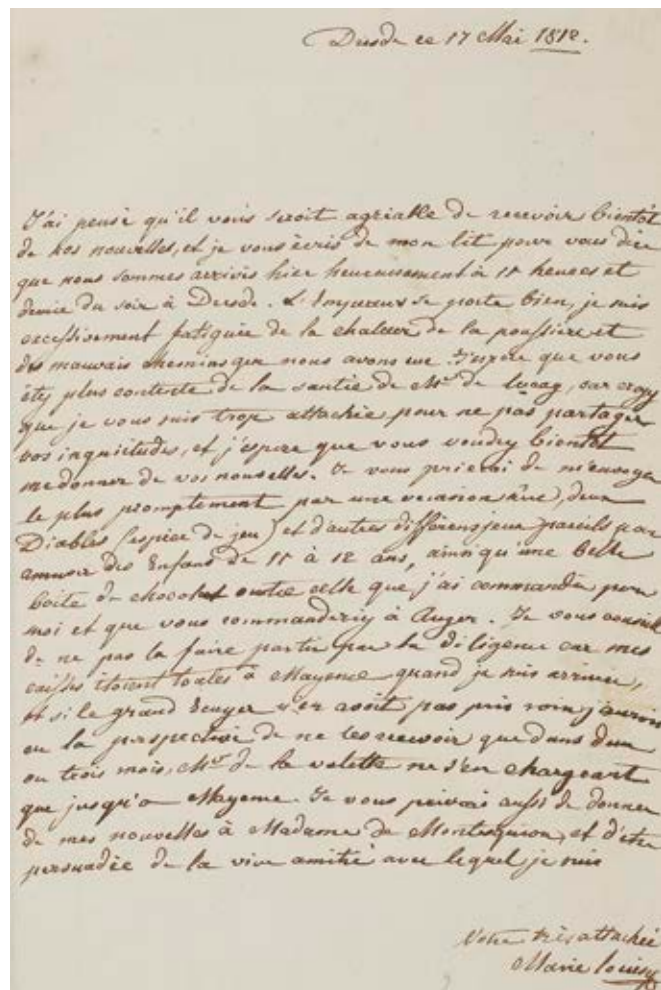 Dresde ce 17 Mai 1812.
J'ai pensé qu'il vous seroit agréable de recevoir bientôt
de nos nouvelles, et je vous écris de mon lit pour vous dire
que nous sommes arrivés hier heureusement à 11 heures et
demie du soir à Dresde. L'Empereur se porte bien, je suis
excessivement fatiguée de la chaleur de la poussière et
des mauvais chemins que nous avons eu. J'espère que vous
êtes plus contente de la santé de Mr de Luçay, car croyez
que je vous suis trop attachée pour ne pas partager
vos inquiétudes, et j'espère que vous voudrez bientôt
me donner de vos nouvelles. Je vous prierai de m'envoyer
le plus promptement par une occasion sûre, deux
Diables (espèce de jeu) et d'autres différens jeux pareils pour
amuser des Enfans de 11 à 12 ans, ainsi qu'une belle
boite de chocolat outre celle que j'ai commandée pour
moi et que vous commanderez à Auger. Je vous conseille
de ne pas la faire partir par la diligence car mes
caisses étoient toutes à Mayence quand je suis arrivée,
et si le grand Ecuyer n'en avoit pas pris soin j'aurois
eu la perspective de ne les recevoir que dans deux
ou trois mois, Mr de la valette ne s'en chargeant
que jusqu'à Mayence. Je vous prierai aussi de donner
de mes nouvelles à Madame de Montesquiou, et d'être
persuadée de la vive amitié avec lequel je suis
Votre très attachée
Marie Louise